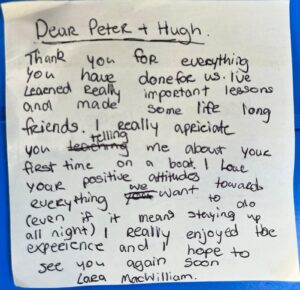 Dear Peter + Hugh.
Thank you for everything
you have done for us. I've
learned really important lessons
and made some life long
friends. I really apriciate
you telling me about your
first time on a boat. I love
your positive attitudes
everything we want towards
to do
(even if it means staying up
all night) I really enjoyed the
experience and I hope to
see you again soon
Lara MacWilliam.